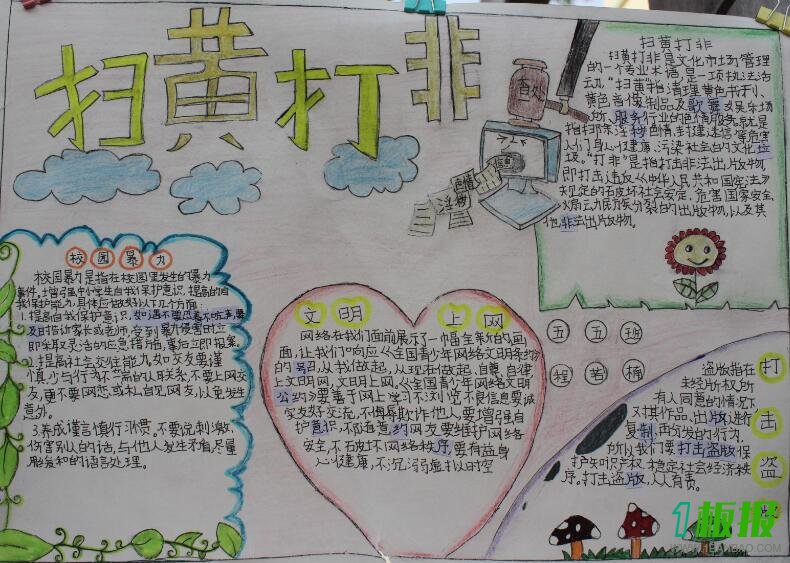 扫黄打非
查处
色情
淫秽
扫黄打非
扫黄打非是文化市场管理
的一个专业术语,是一项执法活
动。"扫黄"指清理黄色书刊、
黄色音像制品及歌舞娱乐场
所、服务行业的色情服务。就是
指扫除淫秽色情,封建迷信等危害
人们身心健康、污染社会的文化垃
圾。"打非"是指打击非法出版物,
即打击违反《中华人民共和国宪法》
规定的破坏社会安定、危害国家安全、
煽动民族分裂的出版物,以及其
他非法出版物。
校园暴力
校园暴力是指在校园里发生的暴力
事件,增强中小学生自我保护意识,提高的自
我保护能力,具体应做好以下几个方面:
1.提高自我保护意识,如遇不要忍着不吭声,要
及时告诉家长或老师,受到暴力侵害时立
即采取灵活的应急措施,事后立即报案。
2.提高社会交往能力如交友要谨
慎,少与行为不端的人联系,不要上网交
友,更不要网恋或私自见网友,以免发生
意外。
3.养成谨言慎行习惯。不要说刺激、
伤害别人的话,与他人发生矛盾尽量
用缓和的语言处理。
文明上网
网络在我们面前展示了一幅全新的画
面,让我们"响应《全国青少年网络文明条约》
的号召,从我做起,从现在做起,自尊、自律
上文明网,文明上网。《全国青少年网络文明
公约》要善于网上学习不浏览不良信息要诚
实友好交流,不侮辱欺诈他人,要增强自
护意识,不随意约网友要维护网络
安全,不破坏网络秩序,要有益身
心健康,不沉溺虚拟时空
五五班
程若楠
打击盗版
盗版指在
未经版权所
有人同意的情况下
对其作品、出版进行
复制,再分发的行为,
所以我们要打击盗版保
护知识产权,稳定社会经济秩
序。打击盗版,人人有责。
1板报
WWW.1BANBAO.COM